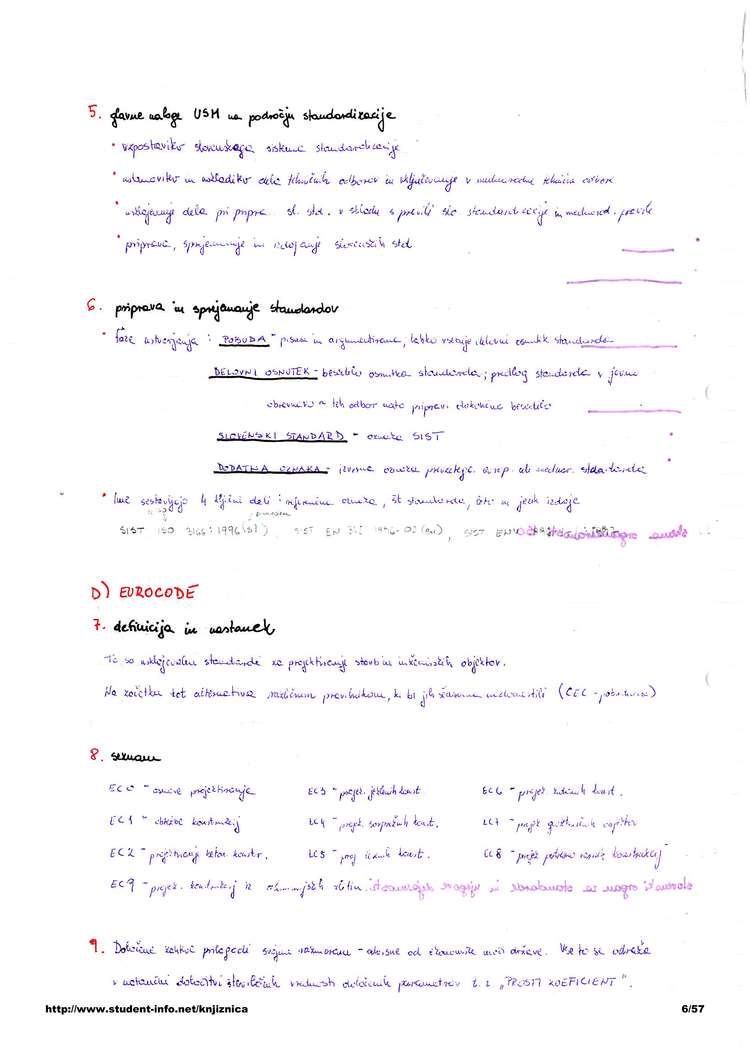 5. glavne naloge USM na področju standardizacije
• vzpostavitev slovenskega sistema standardizacije
• ustanovitev in uskladitev dela tehničnih odborov in vključevanje v mednarodne tehnične odbore
• usklajevanje dela pri pripravi sl. std. v skladu s pravili slo. standardizacije in mednarod. pravili
• priprava, sprejemanje in izdajanje slovenskih std
6. priprava in sprejemanje standardov
• faze ustvarjanja : POBUDA - pisna in argumentirana, lahko vsebuje delovni osnutek standarda
DELOVNI OSNUTEK - besedilo osnutka standarda; predlog standarda v javno
obravnavo ~ teh odbor nato pripravi dokončno besedilo
SLOVENSKI STANDARD - oznaka SIST
DODATNA OZNAKA - izvorna oznaka privzetega evrop. ali mednar. standarda
• Ime sestavljajo 4 ključni deli : referenčna oznaka, št standarda, leto in jezik izdaje
SIST ISO 3166 : 1996 (sl), SIST EN, SIST ENV
D) EUROCODE
7. definicija in nastanek
To so usklajevalni standardi za projektiranje stavb in inženirskih objektov.
Na začetku kot alternativa različnim pravilnikom, ki bi jih sčasoma nadomestili (CEC - pobudnica)
8. seznam
EC 0 - osnove projektiranja EC 3 - projek. jeklenih konst EC 6 - projek zidanih konst.
EC 1 - obtežbe konstrukcij EC 4 - projek. sovprežnih konst. EC 7 - projek geotehničnih
EC 2 - projektiranje beton. konstr. EC 5 - proj lesenih konst. EC 8 - projek potresno varnih konstrukcij
EC 9 - projek. konstrukcij iz aluminijskih zlitin
9. Določene zahteve prilagodi svojim razmeram - odvisne od države. Vse to se odraža
v natančni določitvi številčnih vrednosti določenih parametrov t. i. „PROSTI KOEFICIENT".
http://www.student-info.net/knjiznica 6/57